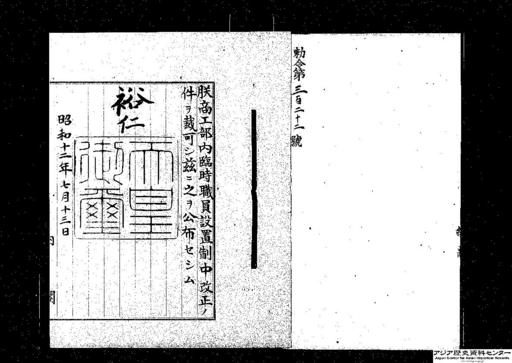 勅令第三百二十二號
朕商工部内臨時職員設置制中改正ノ
件ヲ裁可シ茲ニ之ヲ公布セシム
裕仁
天皇御璽
昭和十二年七月十三日
内閣
アジア歴史資料センター
Japan Center for Asian Historical Records